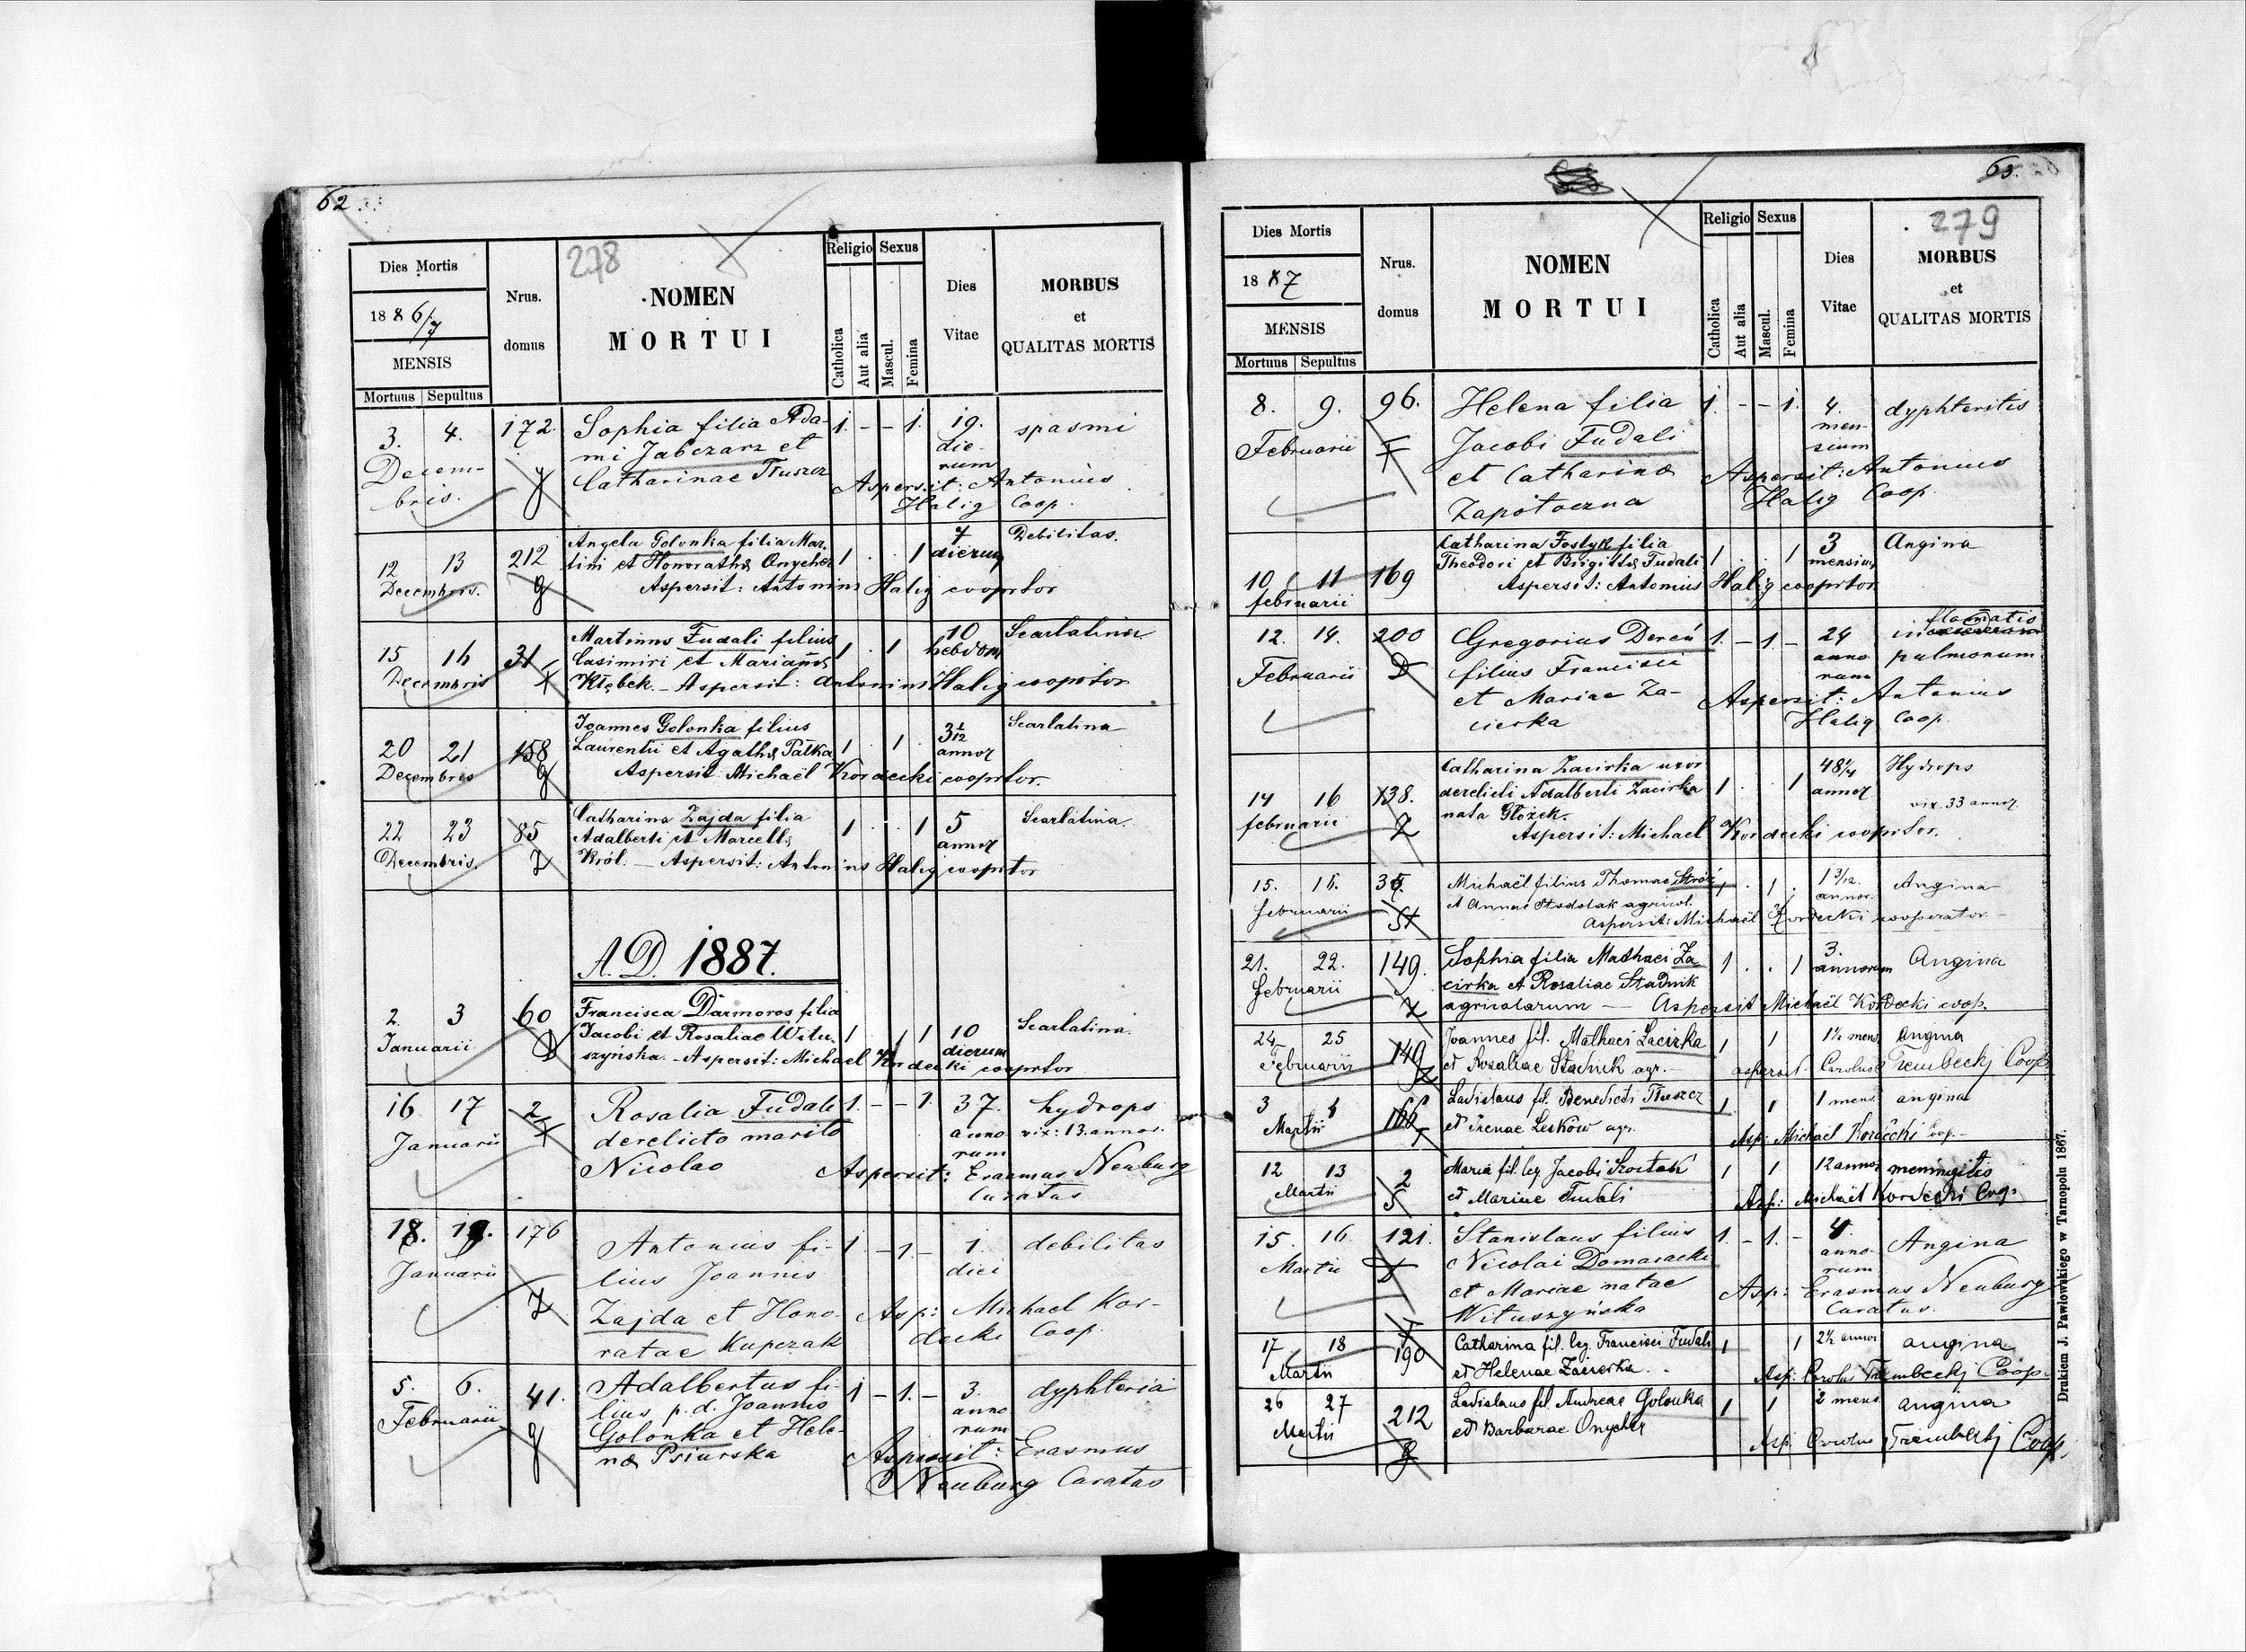 62.
278
Dies Mortis
1886/7
MENSIS
Mortuus Sepultus
Nrus.
domus
NOMEN
MORTUI
Religio Sexus
Catholica
Aut alia
Mascul.
Femina
Dies
Vitae
MORBUS
et
QUALITAS MORTIS
3. 4. 172. Sophia filia Ada- 1. - - 1. 19. spasmi
Decem- mi Jabczarz et die-
bris. g Catharinae Tłuszcz rum
Aspersit: Antonius
Halig Coop.
Angela Golonka filia Mar- 7 Debilitas.
12 13 212 tini et Honorathæ Onycher 1 . . 1 dierum
Decembris. g Aspersit: Antonius Halig cooprtor
Martinus Fudali filius 10 Scarlatina
15 16 31 Casimiri et Mariannæ 1 . 1 hebdom
Decembris Kłębek. - Aspersit: Antonius Halig cooprtor
Joannes Golonka filius 3 1/2 Scarlatina
20 21 158 Laurentii et Agathæ Pałka 1 . 1 . annor
Decembris g Aspersit Michaël Kordecki cooprtor.
Catharina Zajda filia
22 23 85 Adalberti et Marcellæ 1 . . 1 5 Scarlatina.
Decembris. Z Król. - Aspersit: Antonius Halig cooprtor
annor
A.D. 1887.
2. 3 60 Francisca Darmoros filia
Januarii D Jacobi et Rosaliae Witu- 1 1 10 Scarlatina.
szyńska. - Aspersit: Michael Kordecki cooprtor
dierum
16 17 2 Rosalia Fudali 1. - - 1. 37. hydrops
Januarii F derelicto marito anno- vix: 13. annor.
Nicolao rum
Aspersit: Erasmus Neuburg
Curatus
18. 19. 176 Antonius fi- 1. - 1. - 1. debilitas
Januarii lius Joannis diei
Z Zajda et Hono- Asp: Michael Kor-
ratae Kupczak decki Coop.
5. 6. 41. Adalbertus fi- 1 - 1. - 3. dyphteria
Februarii lius p. d. Joannis anno-
g Golonka et Hele- rum
næ Psiurska Aspersit: Erasmus
Neuburg Curatus
63.
279
Dies Mortis
1887
MENSIS
Mortuus Sepultus
Nrus.
domus
NOMEN
MORTUI
Religio Sexus
Catholica
Aut alia
Mascul.
Femina
Dies
Vitae
MORBUS
et
QUALITAS MORTIS
8. 9. 96. Helena filia 1. - - 1. 4. dyphteritis
Februarii F Jacobi Fudali men-
et Catharinæ sium
Zapotoczna Aspersit: Antonius
Halig Coop.
Catharina Fostyk filia 3 Angina
10 11 169 Theodori et Birgittæ Fudali 1 . . 1 mensium
februarii Aspersit: Antonius Halig cooprtor
12. 14. 200 Gregorius Dereń 1. - 1 - 24 inflamatis
Februarii D filius Francisci anno- pulmonum
et Mariae Za- rum
cierka Aspersit: Antonius
Halig Coop.
Catharina Zacirka uxor 48 1/4 Hydrops
14 16 138. derelicti Adalberti Zacirka 1 . . 1 annor
februarii Z nata Głożek. vix. 33 annor.
Aspersit: Michael Kordecki cooprtor.
15. 16. 35. Michaël filius Thomae Stróż 1 . 1 . 1 3/12. Angina
februarii St et Annae Stodolak agricol. annor.
Aspersit: Michaël Kordecki cooperator.
21. 22. 149. Sophia filia Mathaei Za- 1 . . 1 3. Angina
februarii cirka et Rosaliae Stadnik annorum
Z agricolarum - Aspersit Michaël Kordecki coop.
24 25 149 Joannes fil. Mathaei Zacirka 1 1 1 1/2 mens. angina
Februarii Z et Rosaliae Stadnik agr. aspersit. Carolus Trembecki Coop.
3 4 166 Ladislaus fil. Benedicti Tłuszcz 1 1 1 mens. angina
Martii T et Irenae Leśków agr. Asp: Michael Kordecki Coop.
12 13 2 Maria fil. leg. Jacobi Szostak 1 1 12 annor meningitis
Martii S et Mariae Fudali Asp: Michaël Kordecki Coop.
15. 16. 121. Stanislaus filius 1. - 1. - 4. Angina
Martii D Nicolai Domaracki anno-
et Mariae natae rum
Wituszyńska Asp: Erasmus Neuburg
Curatus.
17 18 190 Catharina fil. leg. Francisci Fudali 1 1 2 1/2 annor angina
Martii F et Helenae Zacierka. Asp: Carolus Trembecki Coop.
26 27 212 Ladislaus fil. Andreae Golonka 1 1 2 mens. angina
Martii g et Barbarae Onycher Asp: Carolus Trembecki Coop.
Drukiem J. Pawłowskiego w Tarnopolu 1867.